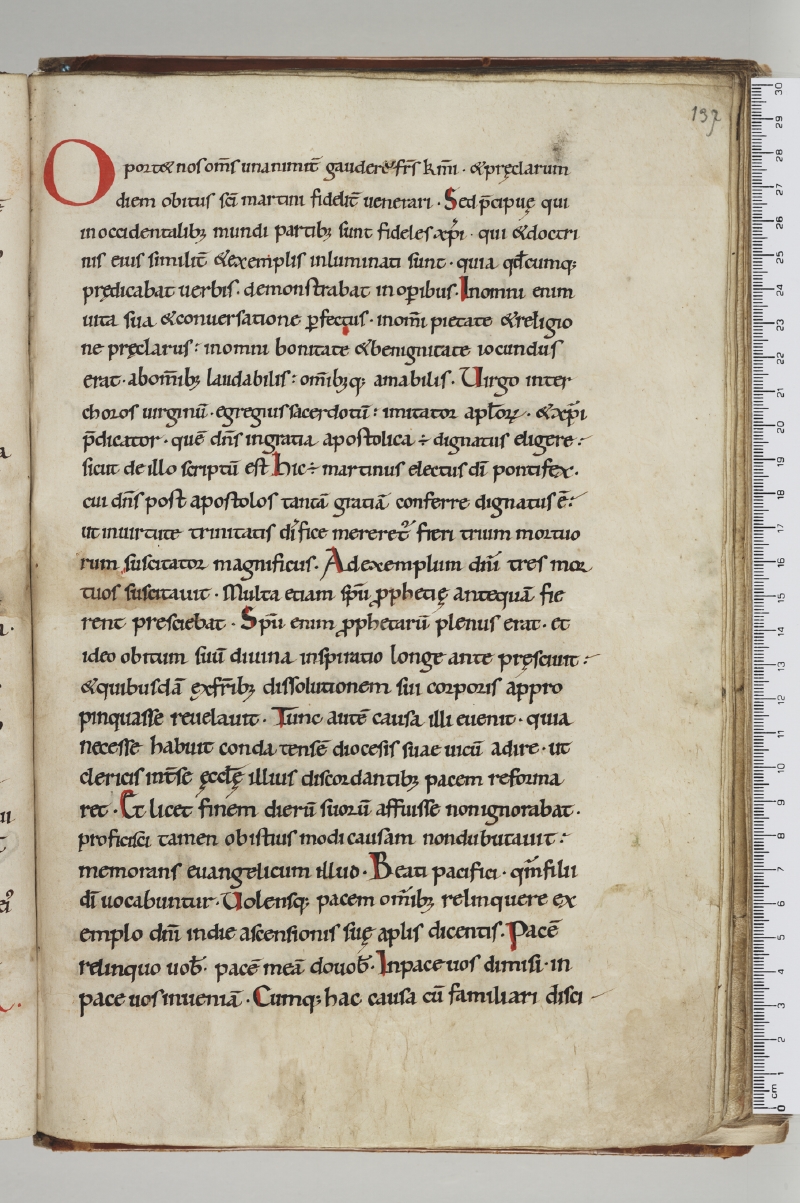 137
Oport& nos om̄s unanimit̄ gaudere fr̄s k̄mi · & pręclarum
diem obitus sc̄i martini fidelit̄ uenerari · Sed p̄cipuę qui
in occidentalib; mundi partib; sunt fideles xp̄i · qui & doctri
nis eius similit̄ & exemplis inluminati sunt · quia qđcumq;
prędicabat uerbis · demonstrabat in operibus. In omni enim
uita sua & conuersatione ꝑfectus · in om̄i pietate & religio
ne pręclarus : in omni bonitate & benignitate iocundus
erat · ab om̄ib; laudabilis : om̄ibq; amabilis · Uirgo inter
choros uirginū · egregius sacerdotū : imitator apl̄oꝝ · & xp̄i
p̄dicator · quē dn̄s in gratia apostolica ÷ dignatus eligere :
sicut de illo scriptū est Hic ÷ martinus electus dī pontifex ·
cui dn̄s post apostolos tantā gratiā conferre dignatus ē :
ut in uirtute trinitatis difice mereret᷑ fieri trium mortuo
rum suscitator magnificus · Ad exemplum dn̄i tres mor
tuos suscitauit · Multa etiam sp̄u ꝓphetię antequā fie
rent presciebat · Spū enim ꝓphetarū plenus erat · et
ideo obitum suū diuina inspiratio longe ante pręsciuit :
& quibusdā ex fr̄ib; dissolutionem sui corporis appro
pinquasse reuelauit · Tunc autē causa illi euenit · quia
necesse habuit condatensē diocesis suae uicū adire · ut
clericis int̄ se ęccl̄ę illius discordantib; pacem reforma
ret · Et licet finem dierū suorū affuisse non ignorabat ·
proficisci tamen ob istius modi causam non dubutauit :
memorans euangelicum illud · Beati pacifici · qm̄ filii
dī uocabuntur · Uolensq; pacem om̄ib; relinquere ex
emplo dn̄i in die ascensionis suę apl̄is dicentis · Pacē
relinquo uob̄ · pacē meā do uob̄ · In pace uos dimisi · in
pace uos inueniā · Cumq; hac causa cū familiari disci